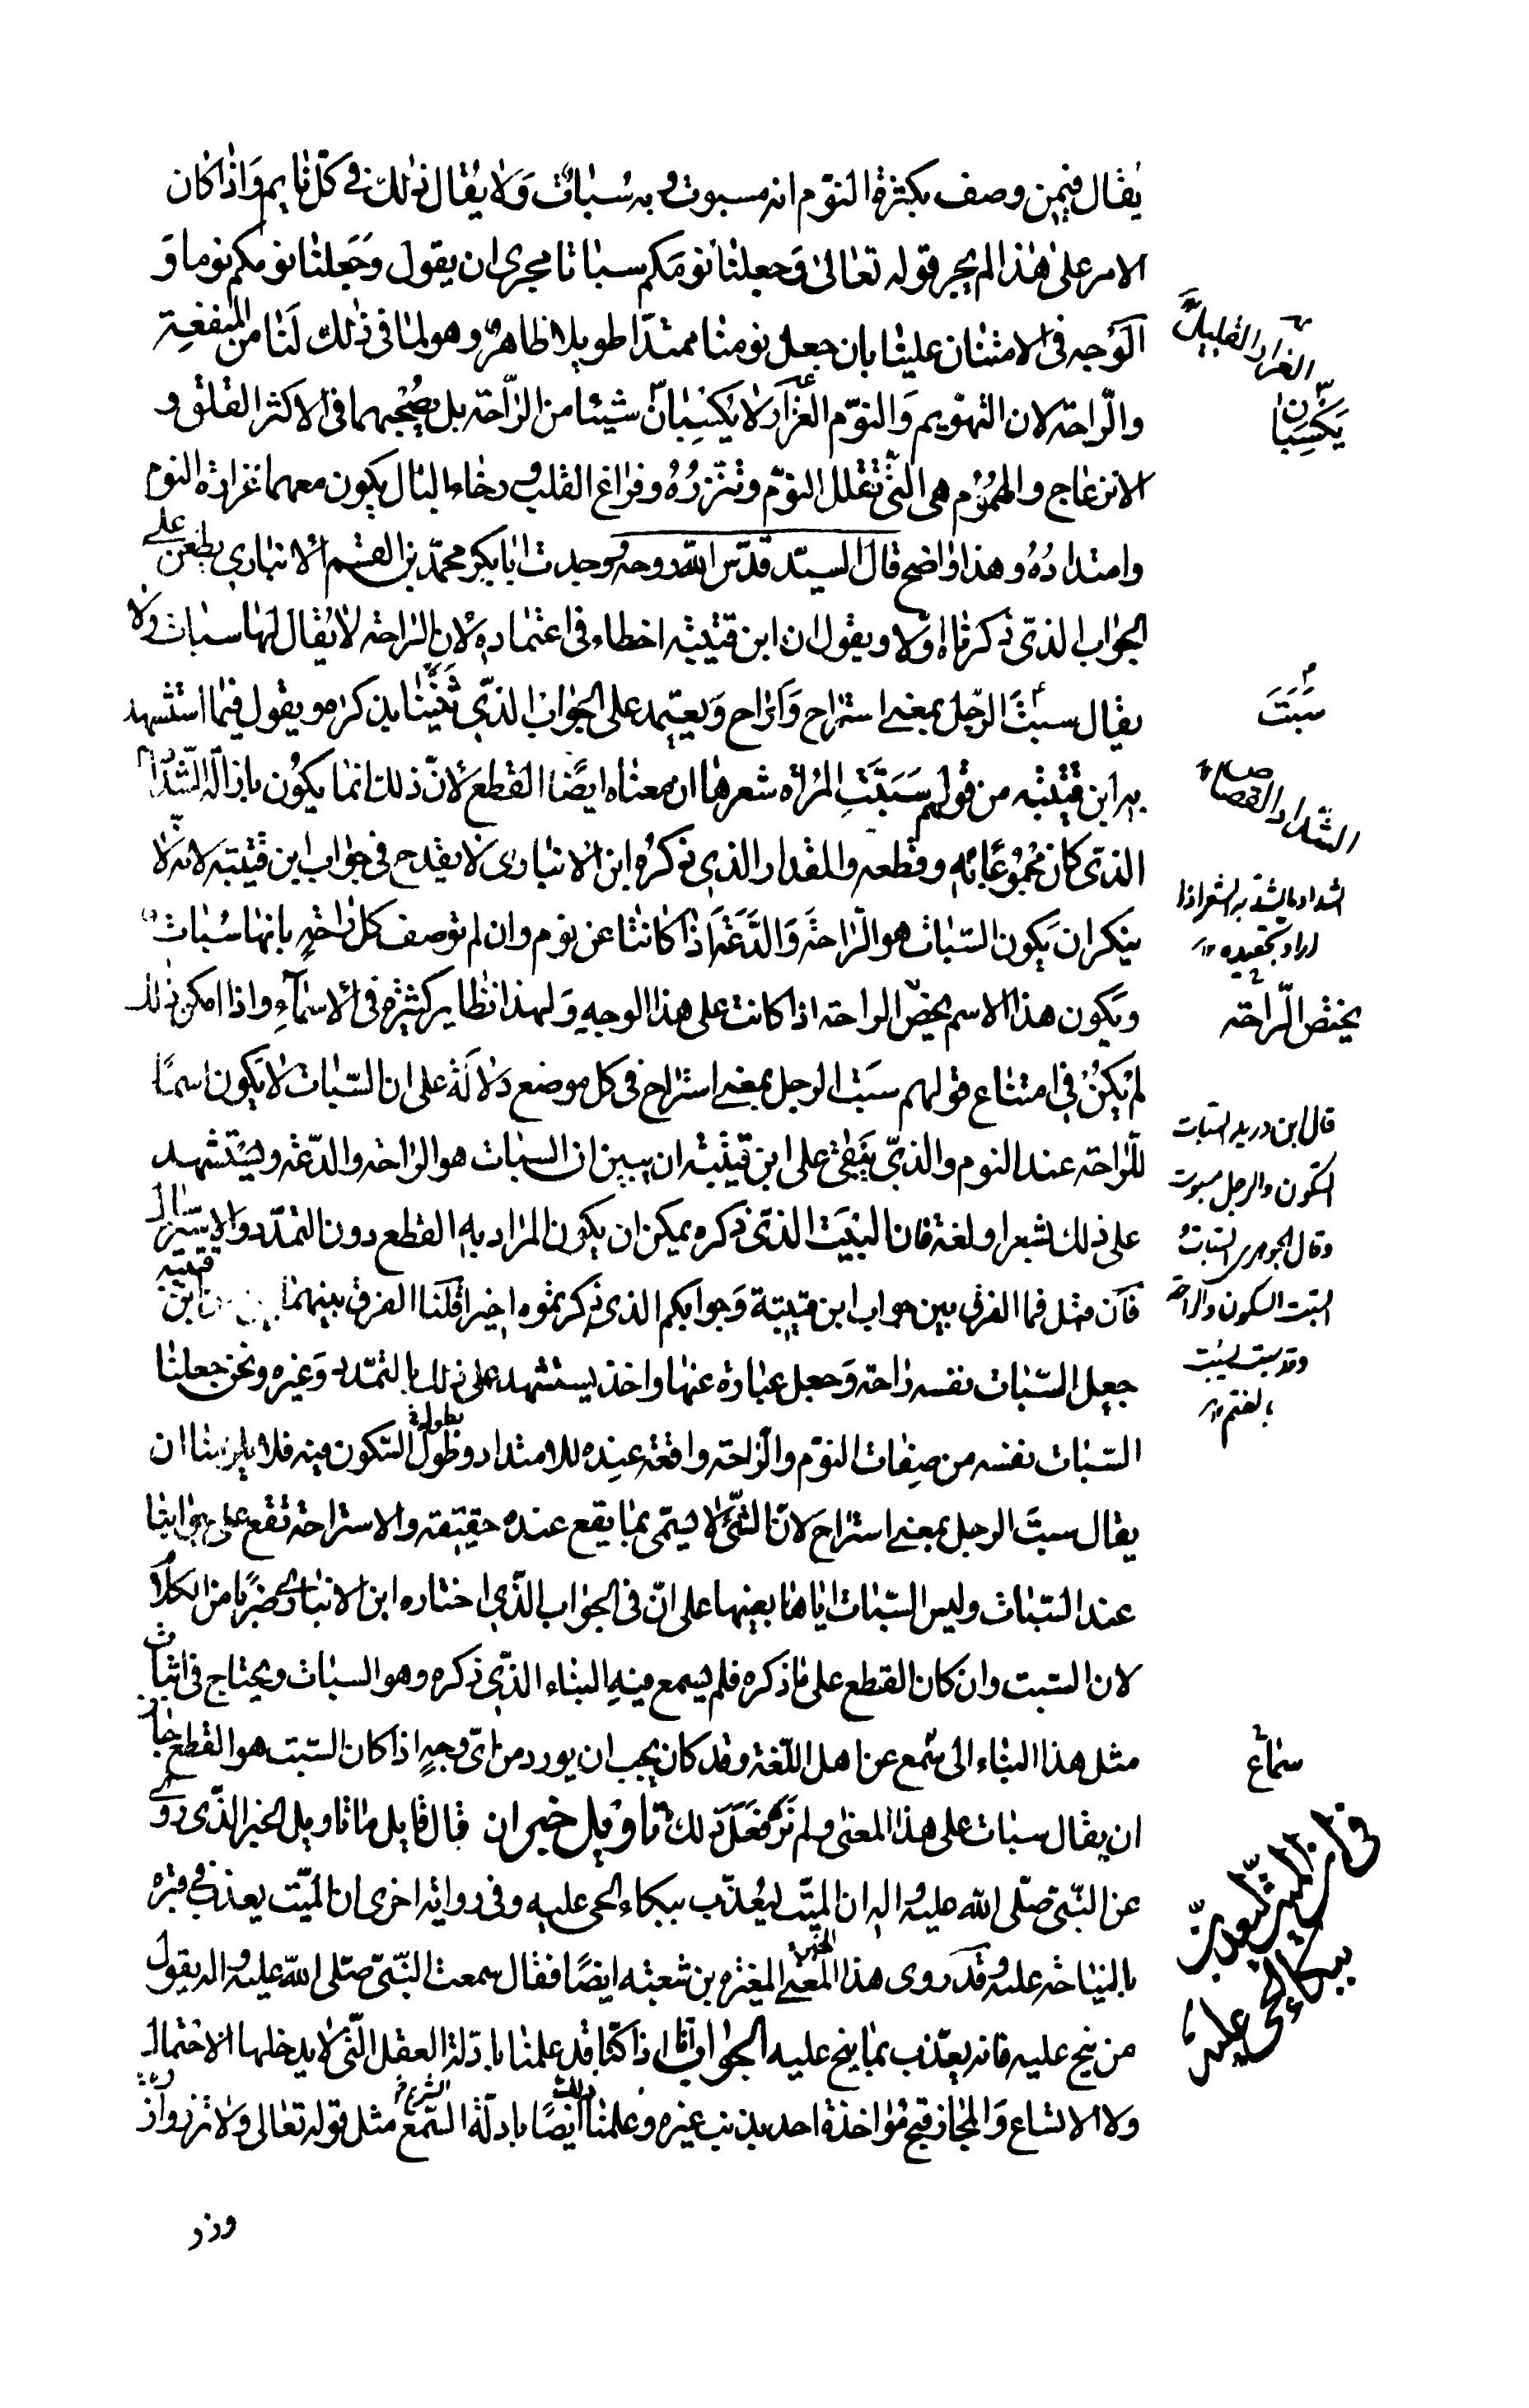 يقال فيمن وصف بكثرة النوم انه مسبوت وبه سبات ولا يقال ذلك في كل نايم واذا كان
الامر على هذا لم يجر قوله تعالى وجعلنا نومكم سباتا مجرى ان يقول وجعلنا نومكم نوما و
الوجه في الامتنان علينا بان جعل نومنا ممتدا طويلا ظاهر وهو لما في ذلك لنا من المنفعة
والراحة لان التهويم والنوم الغرار لا يكسبان شيئا من الراحة بل يصحبهما في الاكثر القلق و
الانزعاج والهموم هي التي تقلل النوم وتنزره وفراغ القلب ورخاء البال يكون معهما غزارة النوم
وامتداده وهذا واضح قال السيد قدس الله روحه وجدت ابا بكر محمد بن القسم الانباري يطعن على
الجواب الذي ذكرناه اولا ويقول ان ابن قتيبة اخطاء في اعتماده لان الراحة لا يقال لها سبات ولا
يقال سبت الرجل بمعنى استراح واراح ويعتمد على الجواب الذي ثنينا بذكره ويقول فيما استشهد
به ابن قتيبة من قولهم سبتت المراة شعرها ان معناه ايضا القطع لان ذلك انما يكون بازالة الشداد
الذي كان مجموعا به وقطعه والمقدار الذي ذكره ابن الانباري لا يقدح في جواب ابن قتيبة لانه لا
ينكر ان يكون السبات هو الراحة والدعة اذا كانتا عن نوم وان لم توصف كل راحة بانها سبات
ويكون هذا الاسم يخص الراحة اذا كانت على هذا الوجه ولهذا نظاير كثيرة في الاسماء واذا امكن ذلك
لم يكن في امتناع قولهم سبت الرجل بمعنى استراح في كل موضع دلالة على ان السبات لا يكون اسما
للراحة عند النوم والذي يبقى على ابن قتيبة ان يبين ان السبات هو الراحة والدعة ويستشهد
على ذلك بشعر او لغة فان البيت الذي ذكره يمكن ان يكون المراد به القطع دون التمدد والاسترسال
فان قيل فما الفرق بين جواب ابن قتيبة وجوابكم الذي ذكرتموه اخيرا قلنا الفرق بينهما بين لان ابن قتيبة
جعل السبات نفسه راحة وجعل عبارة عنها واخذ يستشهد على ذلك بالتمدد وغيره ونحن جعلنا
السبات نفسه من صفات النوم والراحة واقعة عنده للامتداد وطول السكون فيه فلا يلزمنا ان
يقال سبت الرجل بمعنى استراح لان الشئ لا يسمى بما يقع عنده حقيقة والاستراحة تقع على جوابنا
عند السبات وليس السبات اياها بعينها على ان في الجواب الذي اختاره ابن الانباري ضربا من الكلام
لان السبت وان كان القطع على ما ذكره فلم يسمع فيه البناء الذي ذكره وهو السبات ويحتاج في اثبات
مثل هذا البناء الى سمع عن اهل اللغة وقد كان يجب ان يورد من اي وجه اذا كان السبت هو القطع جاز
ان يقال سبات على هذا المعنى ولم نره فعل ذلك تاويل خبر ان قال قايل ما تاويل الخبر الذي روى
عن النبي صلى الله عليه واله ان الميت ليعذب ببكاء الحي عليه وفي رواية اخرى ان الميت يعذب في قبره
بالنياحة عليه وقد روى هذا المعنى المغيرة بن شعبة ايضا فقال سمعت النبي صلى الله عليه واله يقول
من نيح عليه فانه يعذب بما ينح عليه الجواب انا اذا كنا قد علمنا بادلة العقل التي لا يدخلها الاحتمال
ولا الاتساع والمجاز قبح مؤاخذة احد بذنب غيره وعلمنا ايضا بادلة السمع مثل قوله تعالى ولا تزر وازرة
وزر
الغرار القليل
يكسبان
سبت
الشداد
الشداد ما يشد به الشعر اذا
اراد تجعيده
يختص الراحة
قال ابن دريد السبات
السكون والرجل مسبوت
وقال الجوهري السبات
السبت السكون والراحة
وقد سبت يسبت
بالضم
سماع
في ان الميت ليعذب
ببكاء الحي عليه